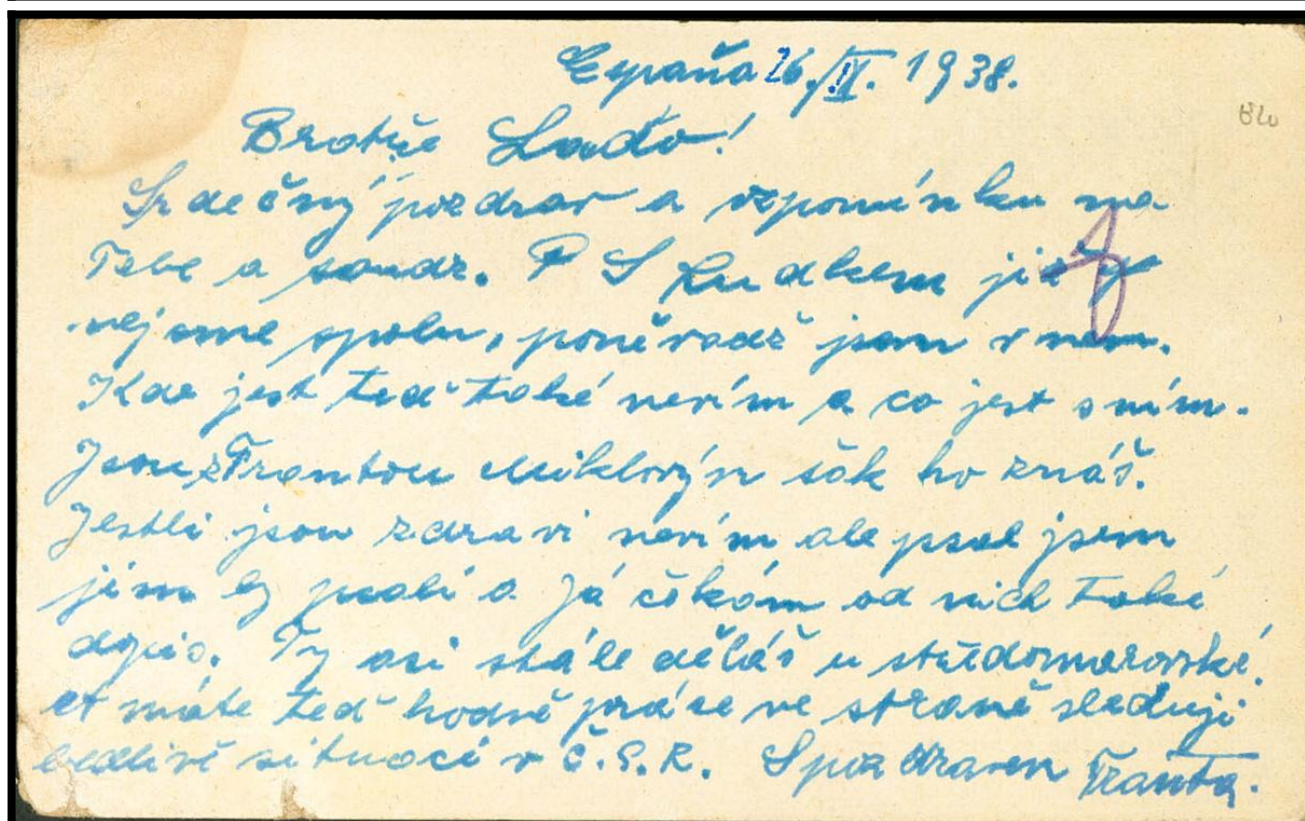 Espaňa 26./IV. 1938.
Bratře Laďo!
Srdečný pozdrav a vzpomínku na
Tebe a soudr. S Ludkem již
nejsme spolu, poněvadž jsem v nem.
Kde jest teď také nevím a co jest s ním.
Jsou z Frantou Miklovým šak ho znáš.
Jestli jsou zdravi nevím ale psal jsem
jim by psali a Já čekám od nich také
dopis. Ty asi stále děláš u středomoravské.
et máte teď hodně práce ve straně sleduji
bedlivě situaci v Č.S.R. S pozdravem Franta.